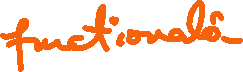 functională